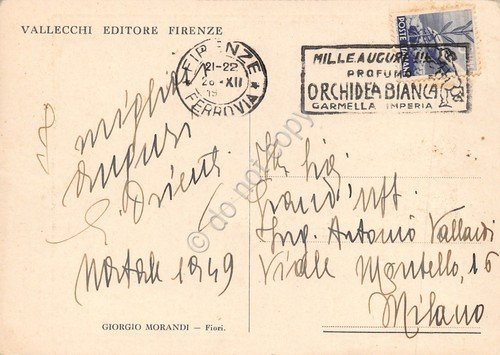 VALLECCHI EDITORE FIRENZE
FIRENZE
21-22
28·XII
19
FERROVIA
MILLE AUGURI
PROFUMO
ORCHIDEA BIANCA
GARMELLA IMPERIA
POSTE ITALIANE
I migliori
auguri
Natale 1949
Ill. Sig.
Grand'Uff.
Ing. Antonio Vallardi
Viale Montello, 16
Milano
GIORGIO MORANDI - Fiori.
© do not copy